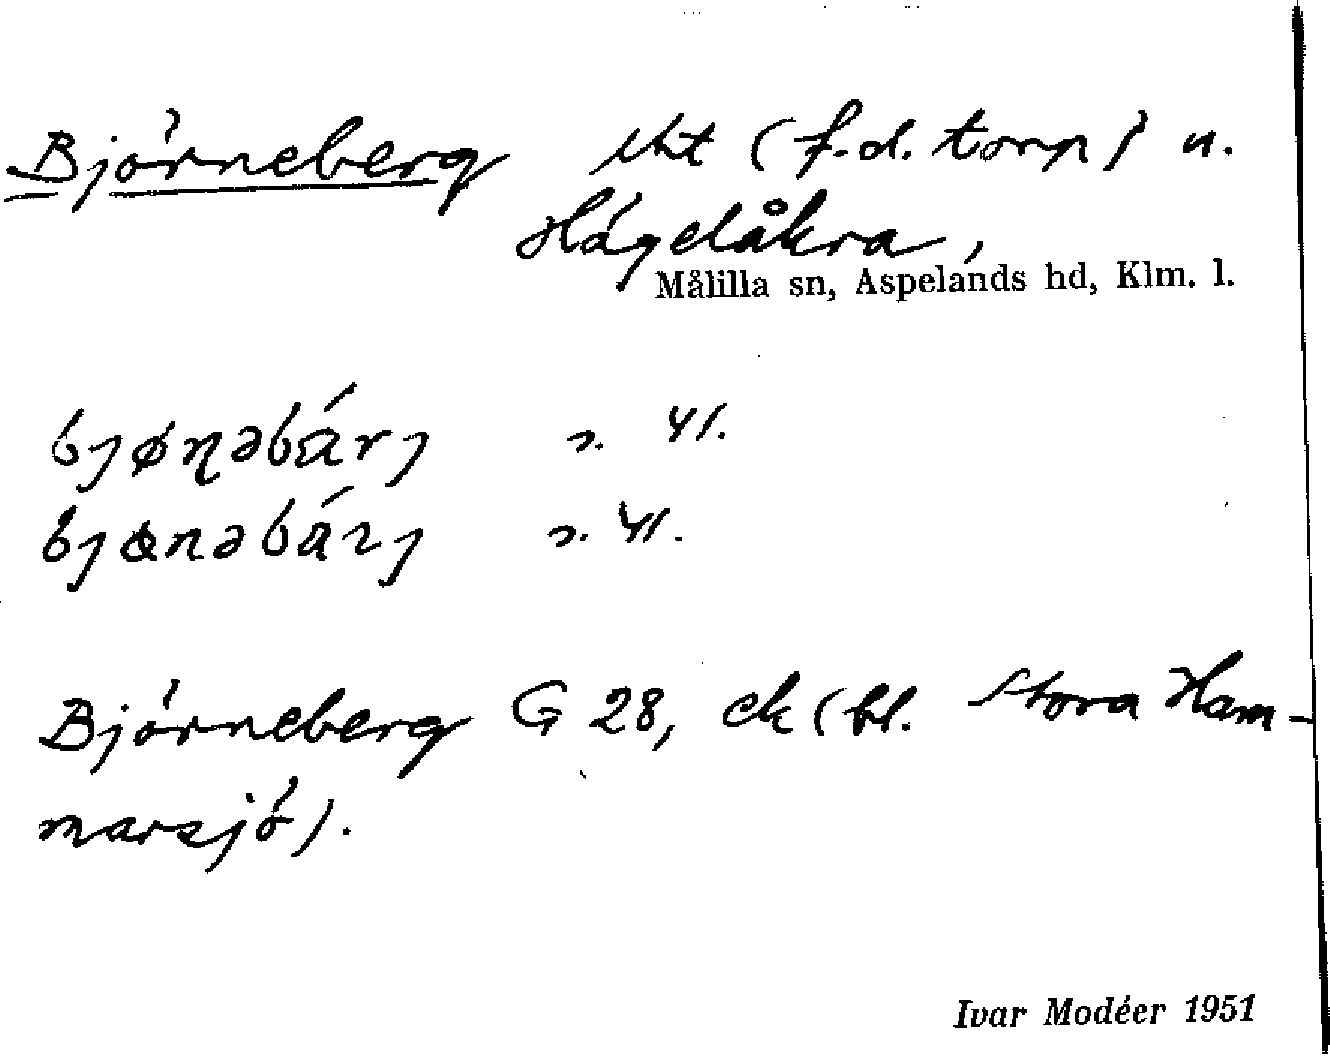 Björneberg lht (f.d. torp) u.
Hägelåkra,
Målilla sn, Aspelands hd, Klm. l.
bjøɳəbárj s. 41.
s. 41.
Björneberg G 28, ek (bl. Stora Ham-
marsjö).
Ivar Modéer 1951